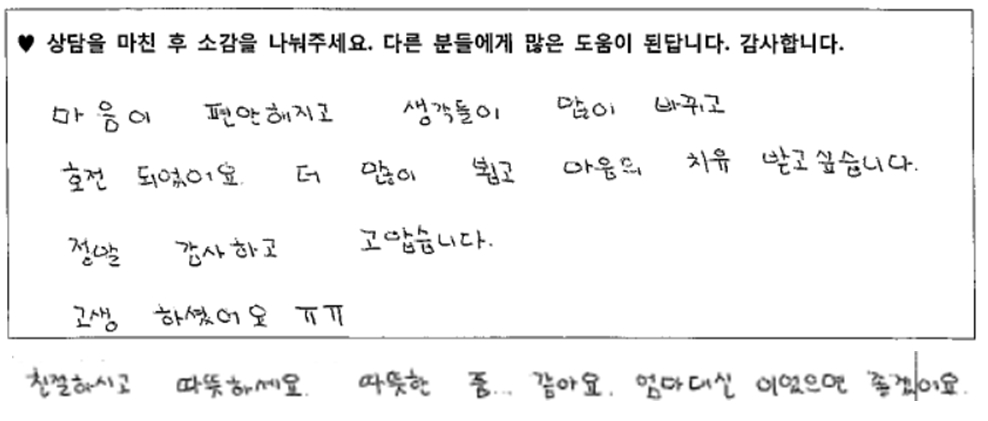 ♥ 상담을 마친 후 소감을 나눠주세요. 다른 분들에게 많은 도움이 된답니다. 감사합니다.
마음이 편안해지고 생각들이 많이 바뀌고
호전 되었어요. 더 많이 뵙고 마음의 치유 받고싶습니다.
정말 감사하고 고맙습니다.
고생 하셨어요 ㅠㅠ
친절하시고 따뜻하세요. 따뜻한 품... 같아요. 엄마대신 이었으면 좋겠어요.